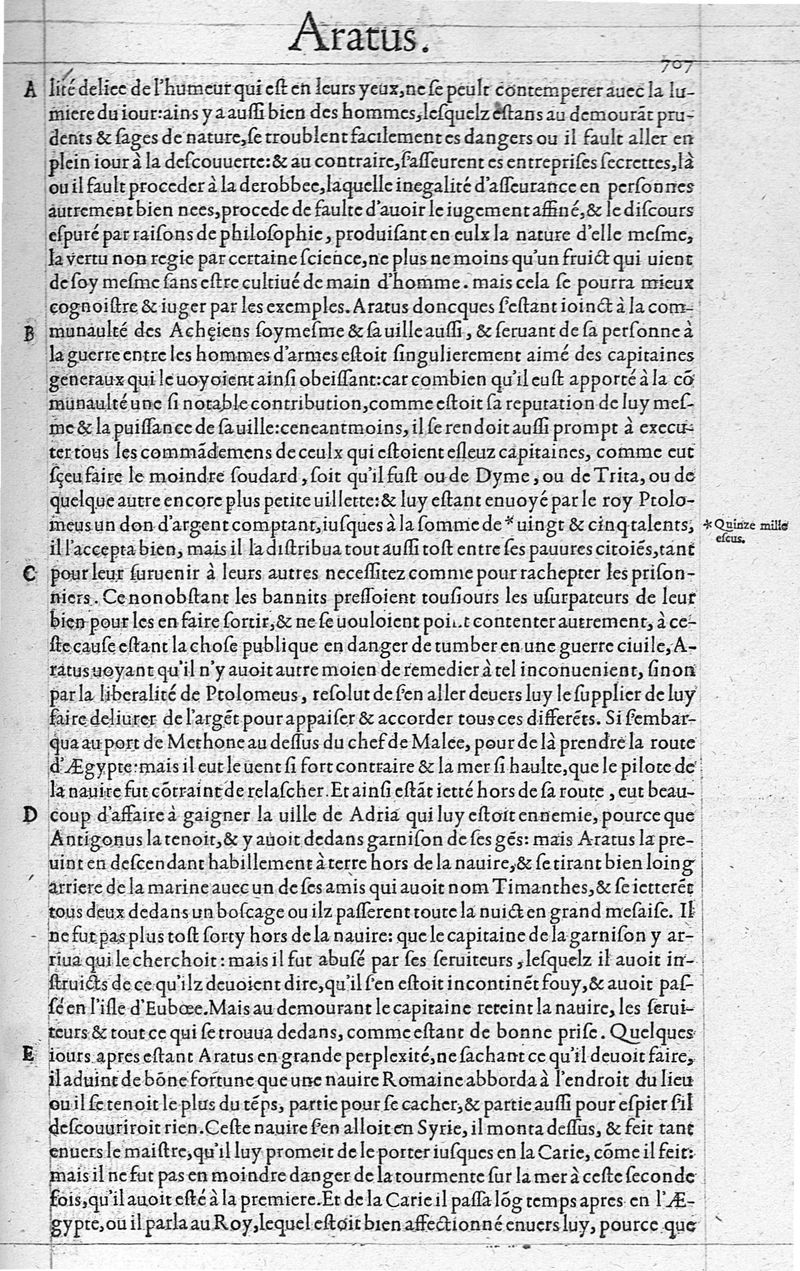 Aratus.
707
A lité deliee de l'humeur qui eſt en leurs yeux, ne ſe peult contemperer auec la lu-
miere du iour: ains y a auſſi bien des hommes, leſquelz eſtans au demourāt pru-
dents & ſages de nature, ſe troublent facilement es dangers ou il fault aller en
plein iour à la deſcouuerte: & au contraire, ſ'aſſeurent es entrepriſes ſecrettes, là
ou il fault proceder à la derobbee, laquelle inegalité d'aſſeurance en perſonnes
autrement bien nees, procede de faulte d'auoir le iugement affiné, & le diſcours
eſpuré par raiſons de philoſophie, produiſant en eulx la nature d'elle meſme,
la vertu non regie par certaine ſcience, ne plus ne moins qu'un fruict qui uient
de ſoy meſme ſans eſtre cultiué de main d'homme. mais cela ſe pourra mieux
cognoiſtre & iuger par les exemples. Aratus doncques ſ'eſtant ioinct à la com-
B munaulté des Achęiens ſoymeſme & ſa uille auſſi, & ſeruant de ſa perſonne à
la guerre entre les hommes d'armes eſtoit ſingulierement aimé des capitaines
generaux qui le uoyoient ainſi obeiſſant: car combien qu'il euſt apporté à la cō
munaulté une ſi notable contribution, comme eſtoit ſa reputation de luy meſ-
me & la puiſſance de ſa uille: ceneantmoins, il ſe rendoit auſſi prompt à execu-
ter tous les commādemens de ceulx qui eſtoient eſleuz capitaines, comme eut
ſçeu faire le moindre ſoudard, ſoit qu'il fuſt ou de Dyme, ou de Trita, ou de
quelque autre encore plus petite uillette: & luy eſtant enuoyé par le roy Ptolo-
meus un don d'argent comptant, iuſques à la ſomme de * uingt & cinq talents,
* Quinze mille
eſcus.
il l'accepta bien, mais il la diſtribua tout auſſi toſt entre ſes pauures citoiés, tant
C pour leur ſuruenir à leurs autres neceſſitez comme pour rachepter les priſon-
niers. Ce nonobſtant les bannits preſſoient touſiours les uſurpateurs de leur
bien pour les en faire ſortir, & ne ſe uouloient point contenter autrement, à ce-
ſte cauſe eſtant la choſe publique en danger de tumber en une guerre ciuile, A-
ratus uoyant qu'il n'y auoit autre moien de remedier à tel inconuenient, ſinon
par la liberalité de Ptolomeus, reſolut de ſ'en aller deuers luy le ſupplier de luy
faire deliurer de l'argēt pour appaiſer & accorder tous ces differēts. Si ſ'embar-
qua au port de Methone au deſſus du chef de Malee, pour de là prendre la route
d'Ægypte: mais il eut le uent ſi fort contraire & la mer ſi haulte, que le pilote de
la nauire fut cōtraint de relaſcher. Et ainſi eſtāt ietté hors de ſa route, eut beau-
D coup d'affaire à gaigner la uille de Adria qui luy eſtoit ennemie, pource que
Antigonus la tenoit, & y auoit dedans garniſon de ſes gés: mais Aratus la pre-
uint en deſcendant habillement à terre hors de la nauire, & ſe tirant bien loing
arriere de la marine auec un de ſes amis qui auoit nom Timanthes, & ſe ietterēt
tous deux dedans un boſcage ou ilz paſſerent toute la nuict en grand meſaiſe. Il
ne fut pas plus toſt ſorty hors de la nauire: que le capitaine de la garniſon y ar-
riua qui le cherchoit: mais il fut abuſé par ſes ſeruiteurs, leſquelz il auoit in-
ſtruicts de ce qu'ilz deuoient dire, qu'il ſ'en eſtoit incontinēt fouy, & auoit paſ-
ſé en l'iſle d'Eubœe. Mais au demourant le capitaine reteint la nauire, les ſerui-
teurs & tout ce qui ſe trouua dedans, comme eſtant de bonne priſe. Quelques
E iours apres eſtant Aratus en grande perplexité, ne ſachant ce qu'il deuoit faire,
il aduint de bōne fortune que une nauire Romaine abborda à l'endroit du lieu
ou il ſe tenoit le plus du tēps, partie pour ſe cacher, & partie auſſi pour eſpier ſ'il
deſcouuriroit rien. Ceſte nauire ſ'en alloit en Syrie, il monta deſſus, & feit tant
enuers le maiſtre, qu'il luy promeit de le porter iuſques en la Carie, cōme il feit:
mais il ne fut pas en moindre danger de la tourmente ſur la mer à ceſte ſeconde
fois, qu'il auoit eſté à la premiere. Et de la Carie il paſſa lōg temps apres en l'Æ-
gypte, ou il parla au Roy, lequel eſtoit bien affectionné enuers luy, pource que